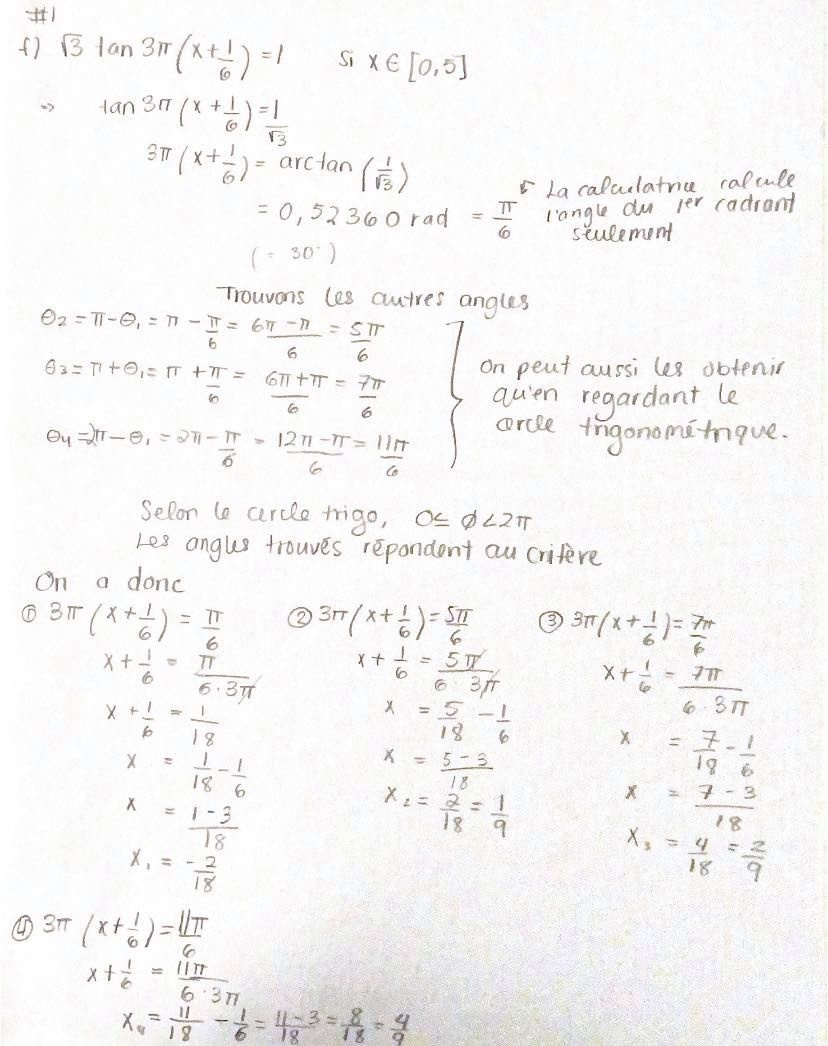 #1
f) √3 tan 3π (x + 1/6) = 1 Si x ∈ [0,5]
⇒ tan 3π (x + 1/6) = 1/√3
3π (x + 1/6) = arctan (1/√3)
= 0,52360 rad = π/6
(= 30°)
La calculatrice calcule
l'angle du 1er cadrant
seulement
Trouvons les autres angles
θ2 = π - θ1 = π - π/6 = (6π - π)/6 = 5π/6
θ3 = π + θ1 = π + π/6 = (6π + π)/6 = 7π/6
θ4 = 2π - θ1 = 2π - π/6 = (12π - π)/6 = 11π/6
On peut aussi les obtenir
qu'en regardant le
cercle trigonométrique.
Selon le cercle trigo, 0 ≤ Ø < 2π
Les angles trouvés répondent au critère
On a donc
① 3π (x + 1/6) = π/6
x + 1/6 = π/(6·3π)
x + 1/6 = 1/18
x = 1/18 - 1/6
x = (1 - 3)/18
x1 = -2/18
② 3π (x + 1/6) = 5π/6
x + 1/6 = 5π/(6·3π)
x = 5/18 - 1/6
x = (5 - 3)/18
x2 = 2/18 = 1/9
③ 3π (x + 1/6) = 7π/6
x + 1/6 = 7π/(6·3π)
x = 7/18 - 1/6
x = (7 - 3)/18
x3 = 4/18 = 2/9
④ 3π (x + 1/6) = 11π/6
x + 1/6 = 11π/(6·3π)
x4 = 11/18 - 1/6 = (11 - 3)/18 = 8/18 = 4/9